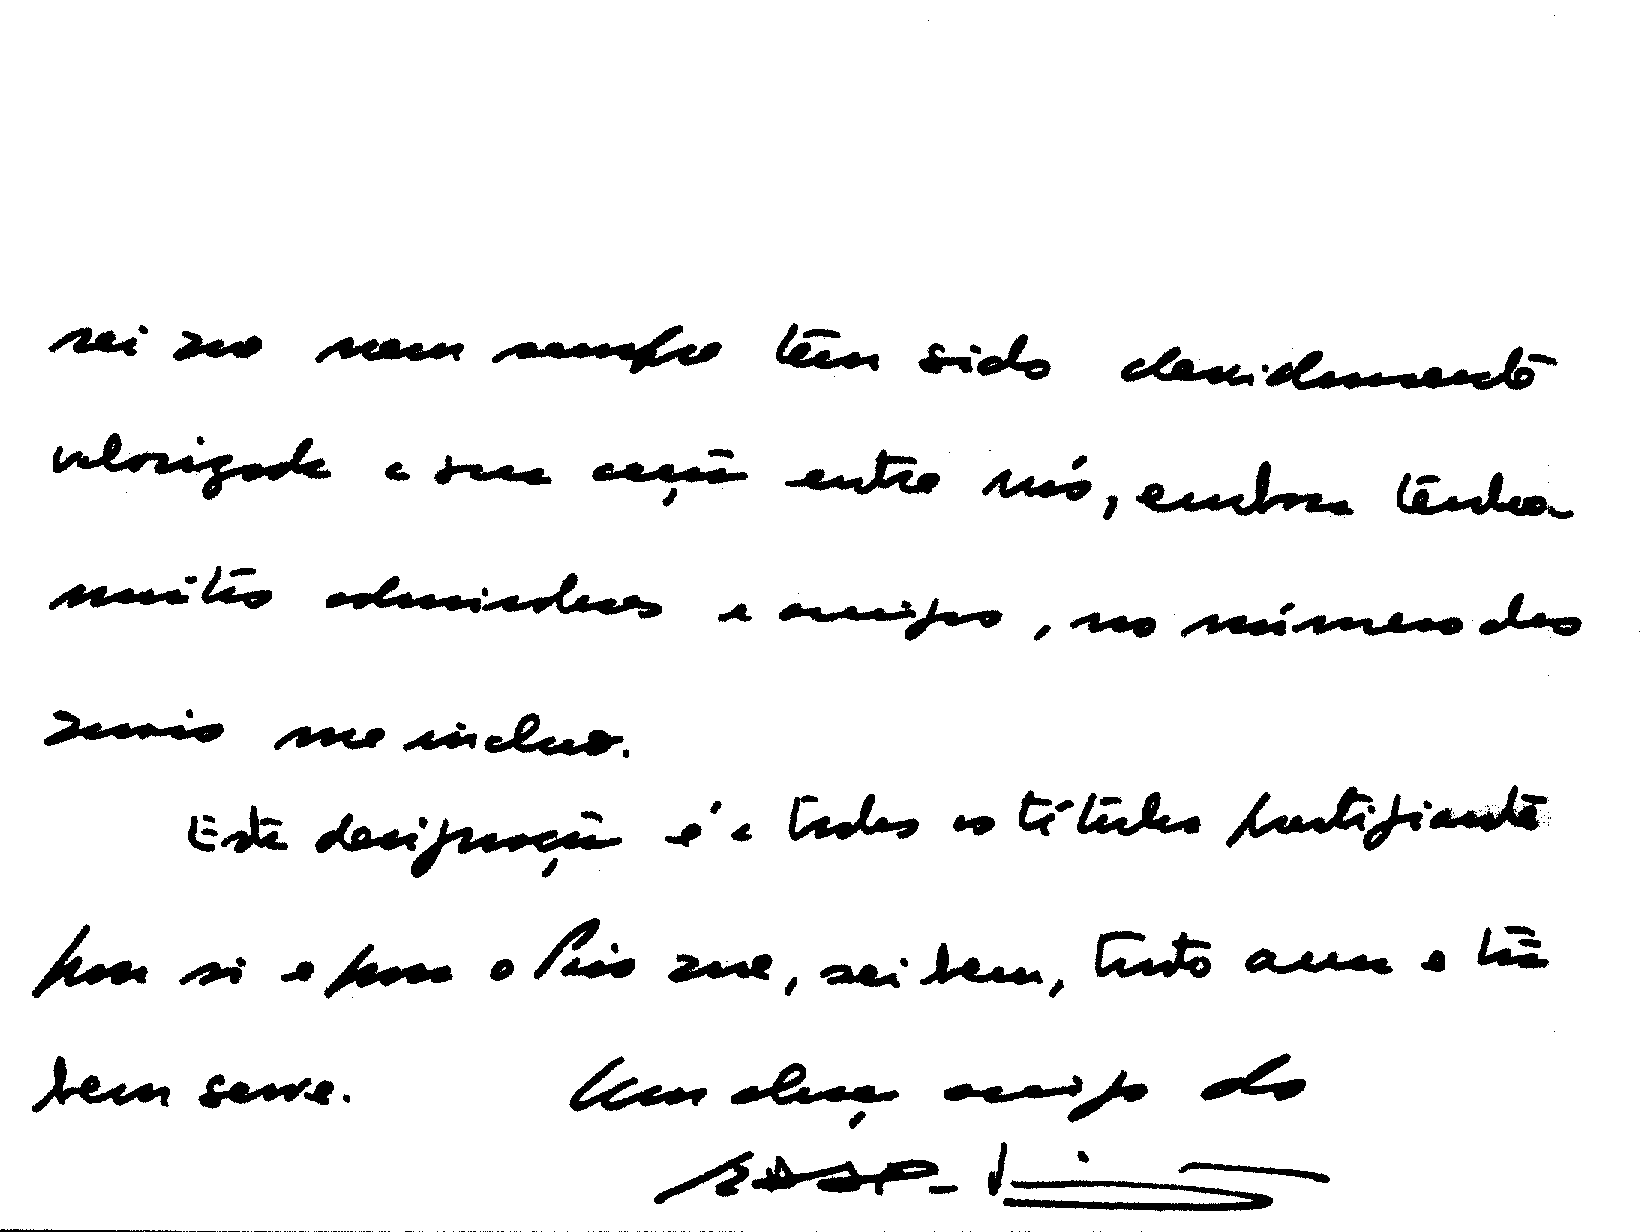 sei que nem sempre têm sido devidamente
valorizada a sua acção entre nós, embora tenha
muitos admiradores e amigos, no número dos
quais me incluo.
Esta designação é a todos os títulos prestigiante
para si e para o País que, sei bem, tanto ama e tão
bem serve. Um abraço amigo do